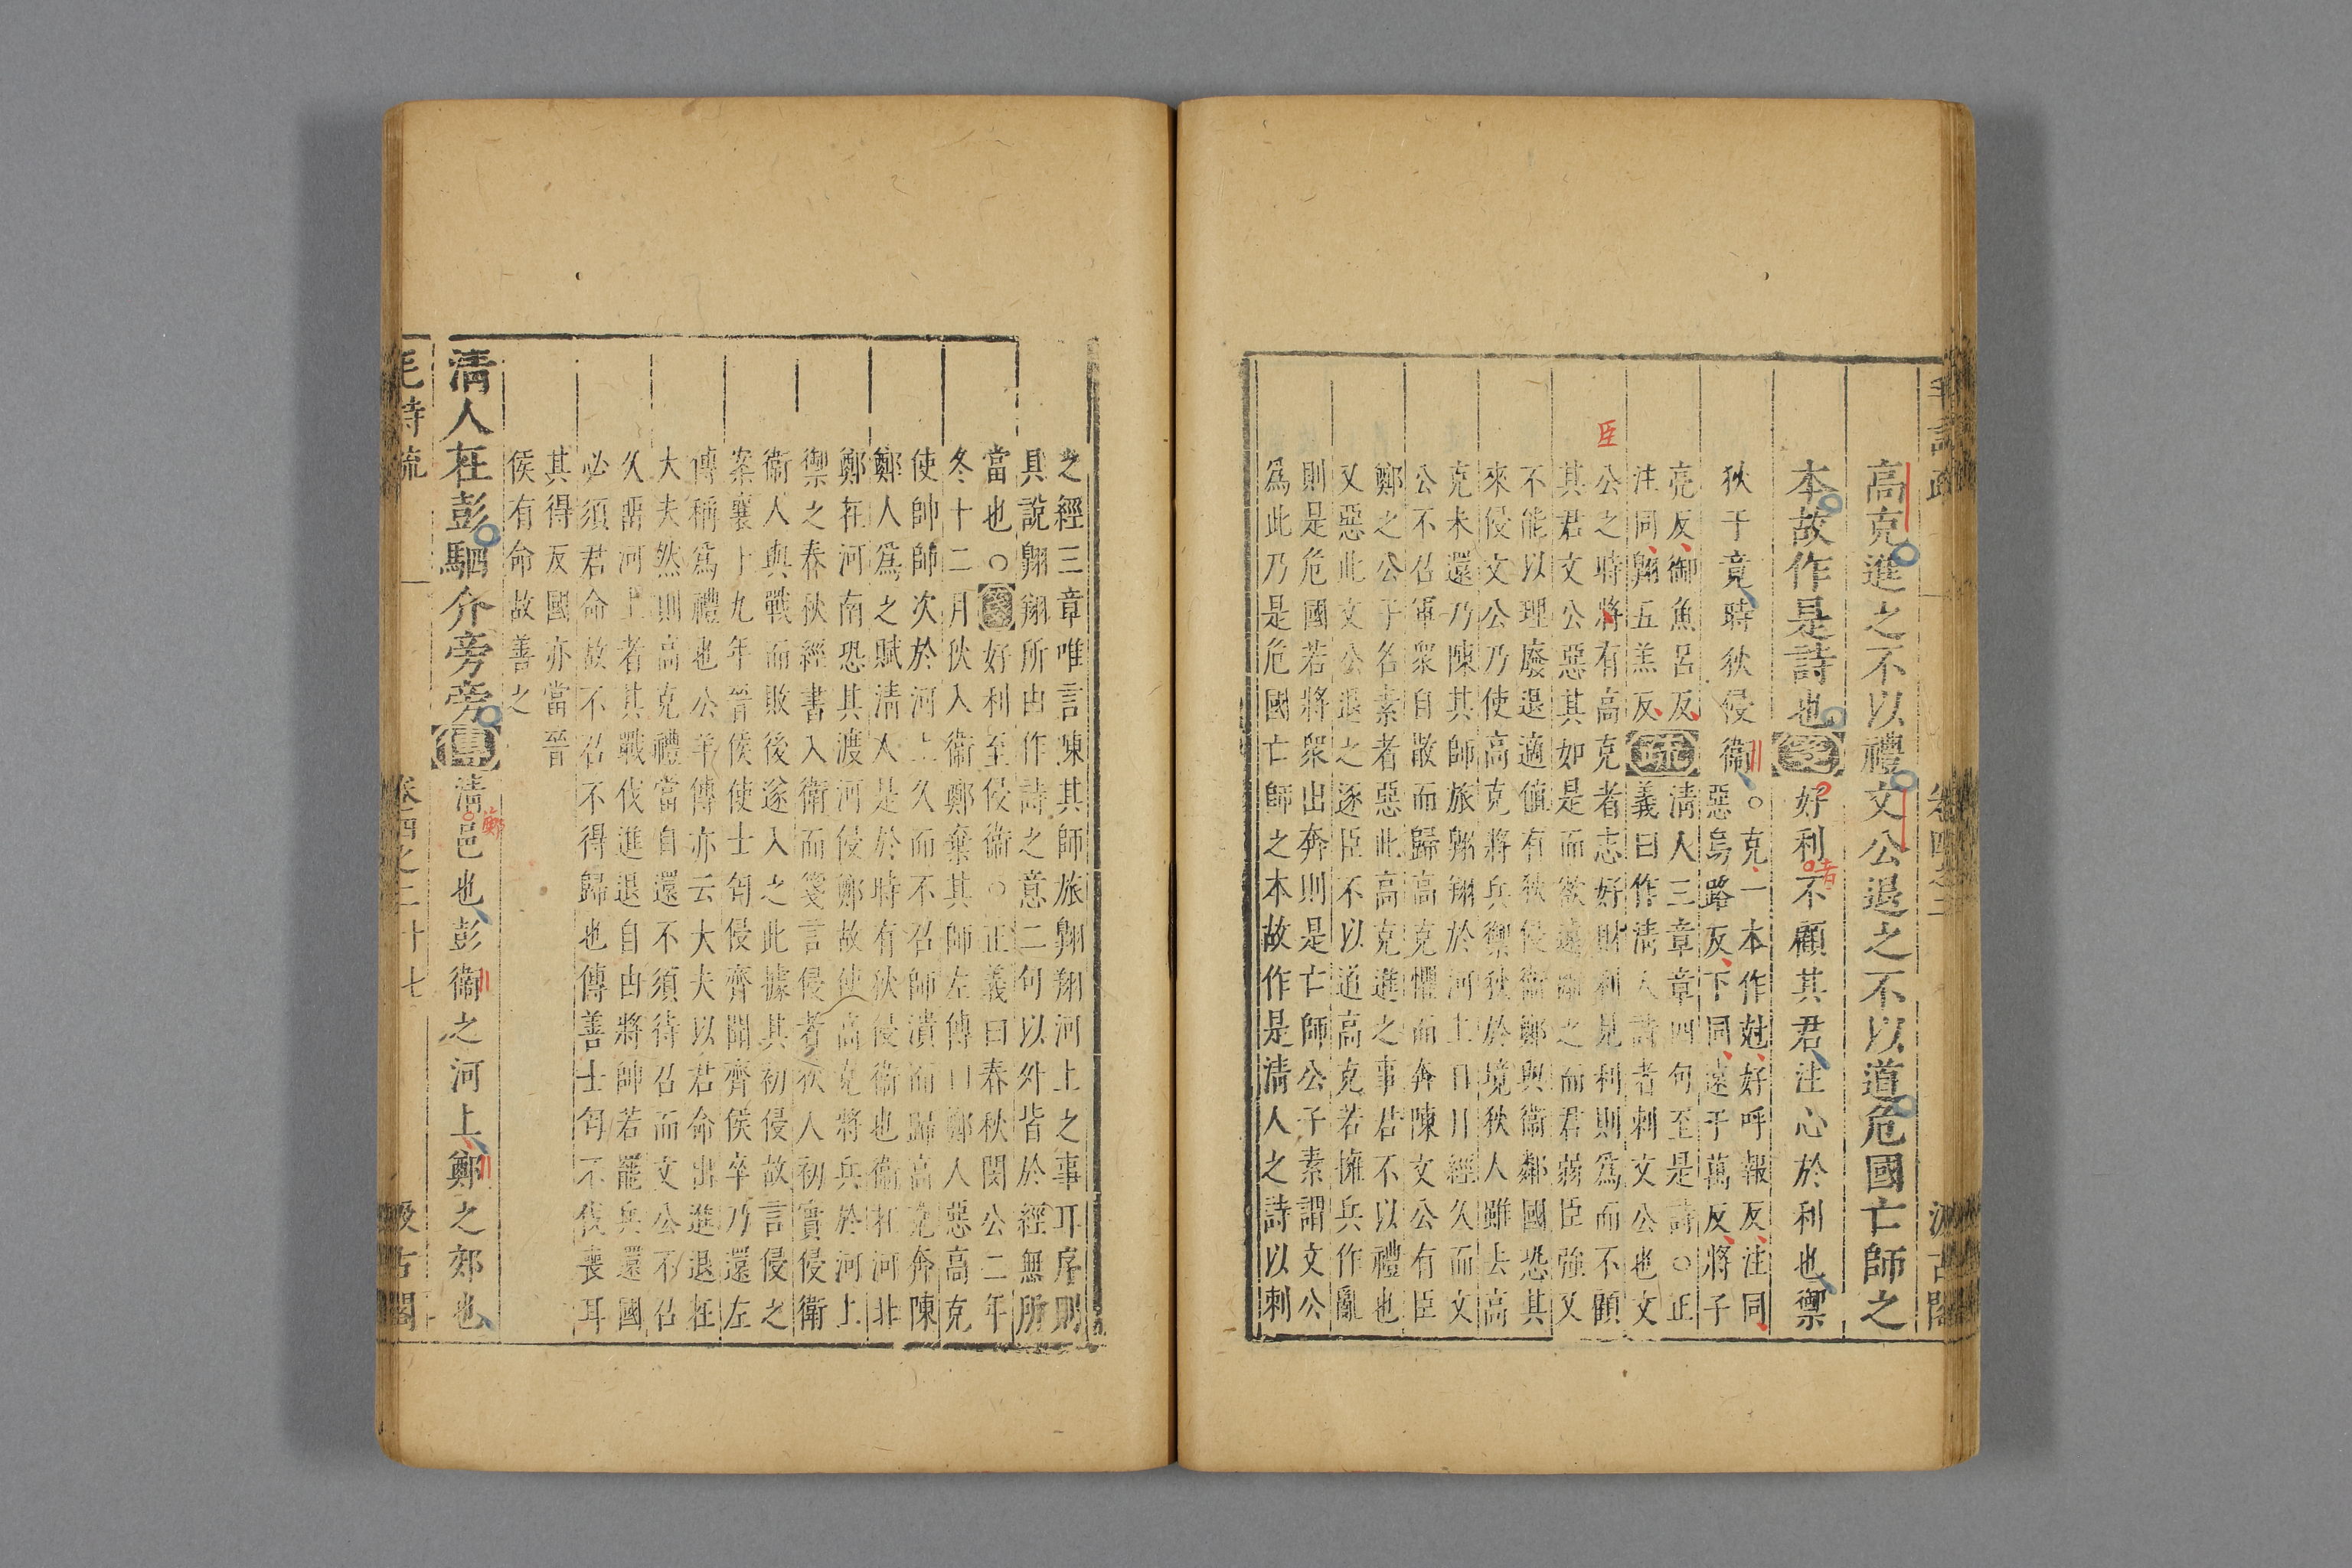 毛詩疏 卷四之二 汲古閣
高克進之不以禮文公退之不以道危國亡師之
本故作是詩也箋好利不顧其君注心於利也禦
者
狄于竟時狄侵衞○克一本作尅好呼報反注同
惡烏路反下同遠于萬反將子
亮反御魚呂反疏清人三章章四句至是詩○正
注同翺五羔反義曰作清人詩者刺文公也文
臣
公之時將有高克者志好財利見利則爲而不顧
其君文公惡其如是而欲遠離之而君弱臣強又
不能以理廢退適值有狄侵衞鄭與衞鄰國恐其
來侵文公乃使高克將兵禦狄於境狄人雖去高
克未還乃陳其師旅翺翔於河上日月經久而文
公不召軍衆自散而歸高克懼而奔陳文公有臣
鄭之公子名素者惡此高克進之事君不以禮也
又惡此文公退之逐臣不以道高克若擁兵作亂
則是危國若將衆出奔則是亡師公子素謂文公
爲此乃是危國亡師之本故作是清人之詩以刺
之經三章唯言陳其師旅翺翔河上之事耳序則
具說翺翔所由作詩之意二句以外皆於經無所
當也○箋好利至侵衞○正義曰春秋閔公二年
冬十二月狄入衞鄭棄其師左傳曰鄭人惡高克
使帥師次於河上久而不召師潰而歸高克奔陳
鄭人爲之賦清人是於時有狄侵衞也衞在河北
鄭在河南恐其渡河侵鄭故使高克將兵於河上
禦之春秋經書入衞而箋言侵者狄人初實侵衞
衞人與戰而敗後遂入之此據其初侵故言侵之
案襄十九年晉侯使士匄侵齊聞齊侯卒乃還左
傳稱爲禮也公羊傳亦云大夫以君命出進退在
大夫然則高克禮當自還不須待召而文公不召
久留河上者其戰伐進退自由將帥若罷兵還國
必須君命故不召不得歸也傳善士匄不伐喪耳
其得反國亦當晉
侯有命故善之
清人在彭駟介旁旁傳清邑也彭衞之河上鄭之郊也
鄭
毛詩疏 卷四之二 十七 汲古閣